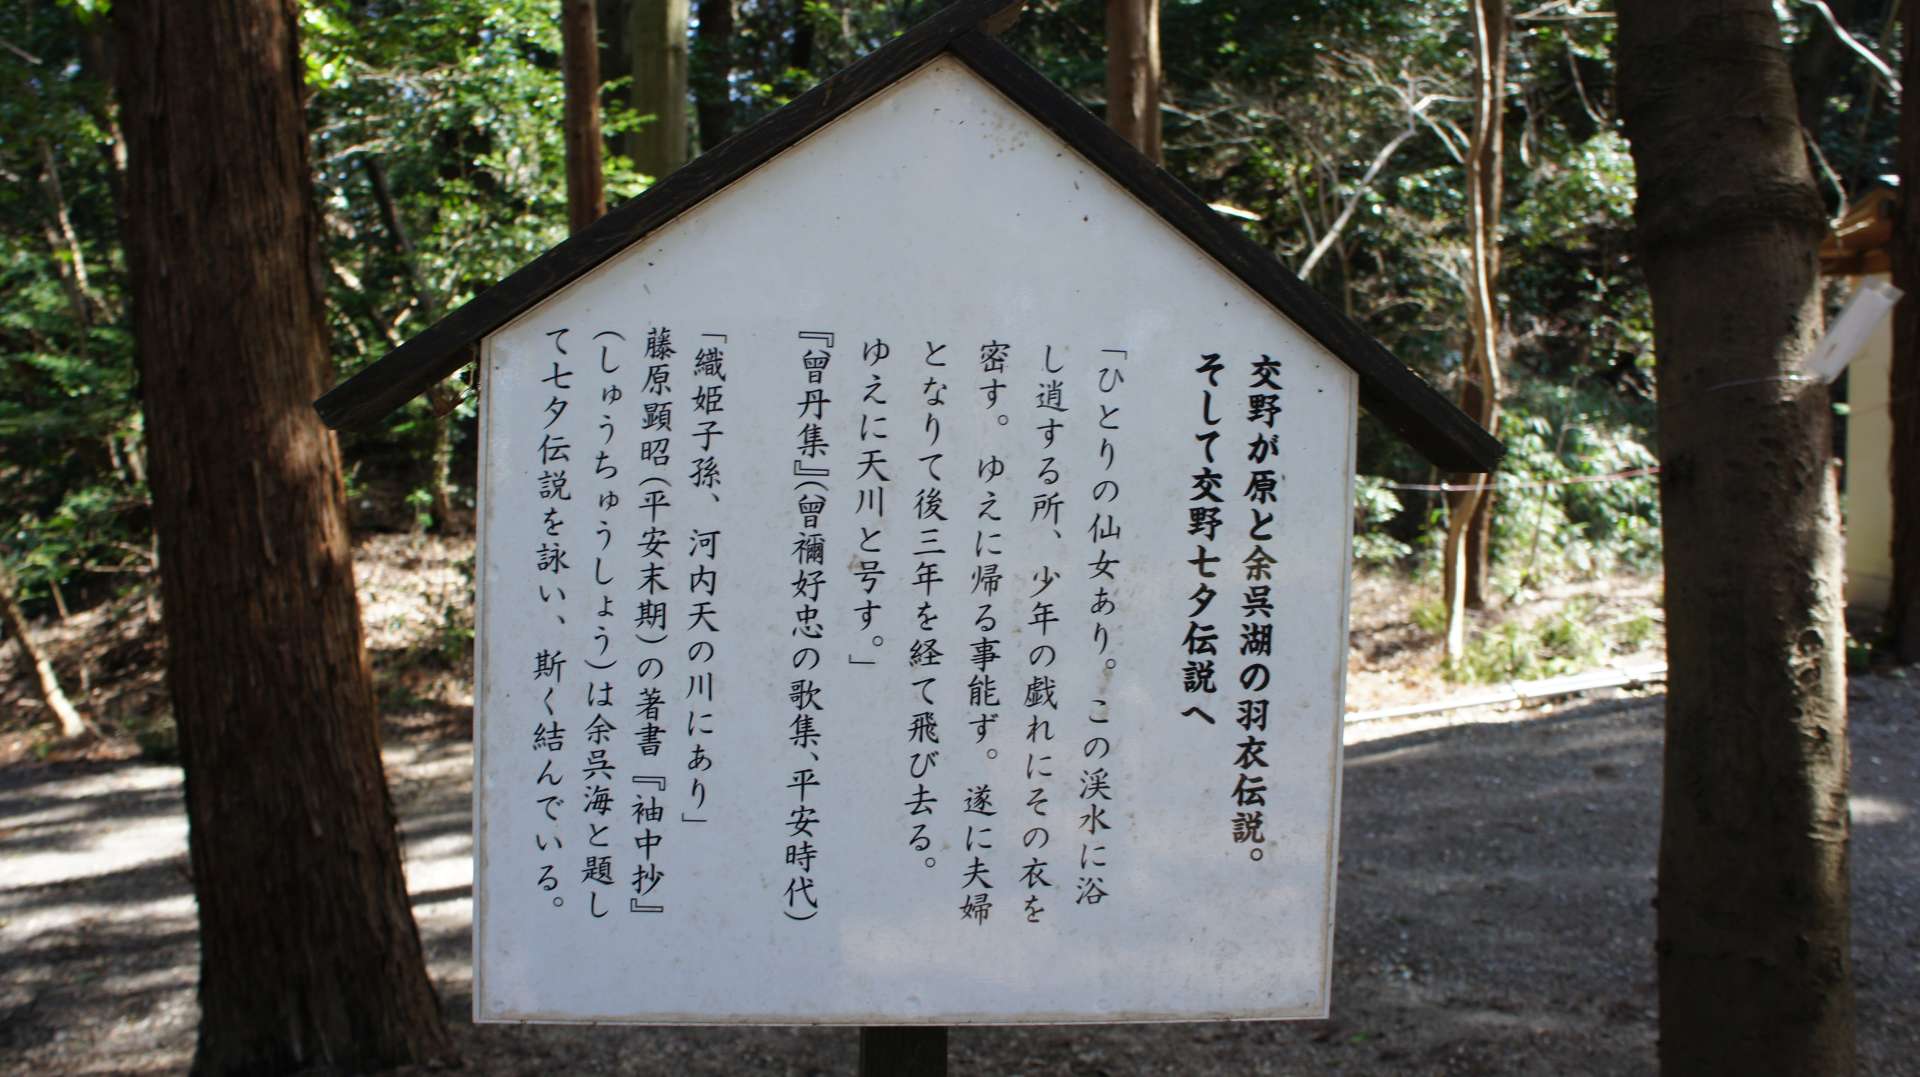 交野が原と余呉湖の羽衣伝説。
そして交野七夕伝説へ
「ひとりの仙女あり。この渓水に浴
し逍する所、少年の戯れにその衣を
密す。ゆえに帰る事能ず。遂に夫婦
となりて後三年を経て飛び去る。
ゆえに天川と号す。」
『曾丹集』(曾禰好忠の歌集、平安時代)
「織姫子孫、河内天の川にあり」
藤原顕昭(平安末期)の著書『袖中抄』
(しゅうちゅうしょう)は余呉海と題し
て七夕伝説を詠い、斯く結んでいる。